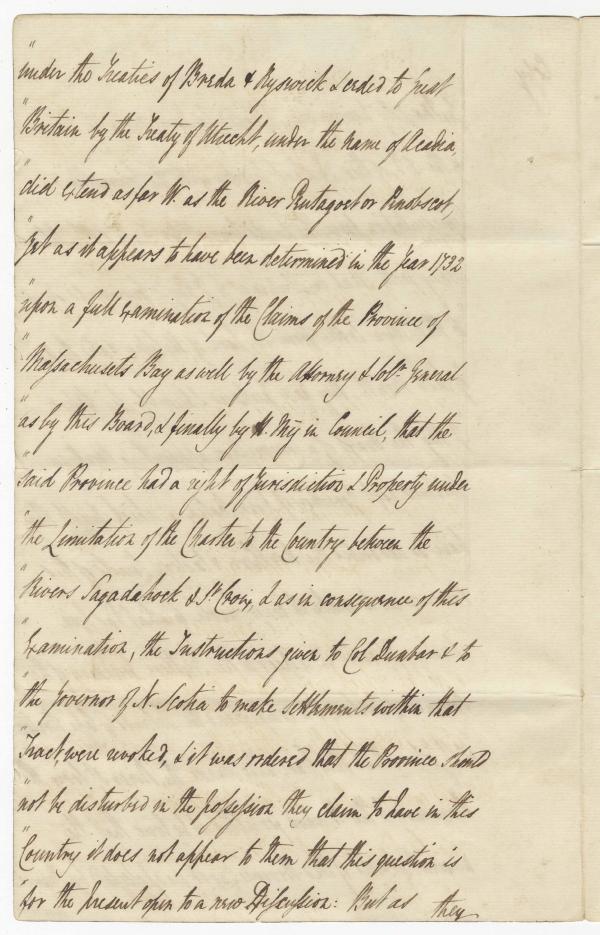 " under the Treaties of Breda & Ryswick & ceded to Great
" Britain by the Treaty of Utrecht, under the name of Acadia,
" did extend as far W. as the River Pentagoet or Penobscot,
" yet as it appears to have been determined in the Year 1732
" upon a full Examination of the Claims of the Province of
" Massachusets Bay as well by the Attorney & Solr. General
" as by this Board, & finally by H. My in Council, that the
" said Province had a right of Jurisdiction & Property under
" the Limitation of the Charter to the Country between the
" Rivers Sagadahock & St. Croix, & as in consequence of this
" Examination, the Instructions given to Col Dunbar & to
" the Governor of N. Scotia to make Settlements within that
" Tract, were revoked, & it was ordered that the Province should
" not be disturbed in the possession they claim to have in this
" Country it does not appear to them that this question is
" for the present open to a new Discussion: But as they